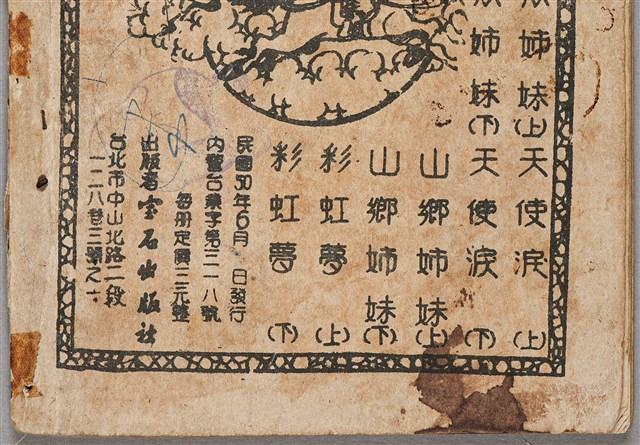 姉妹(上)天使淚(上)
姉妹(下)天使淚(下)
山鄉姉妹(上)
山鄉姉妹(下)
彩虹夢(上)
彩虹夢(下)
民國50年6月 日發行
內警台業字第三一八號
每册定價三元整
出版者宝石出版社
台北市中山北路二段
一二八巷三號之十